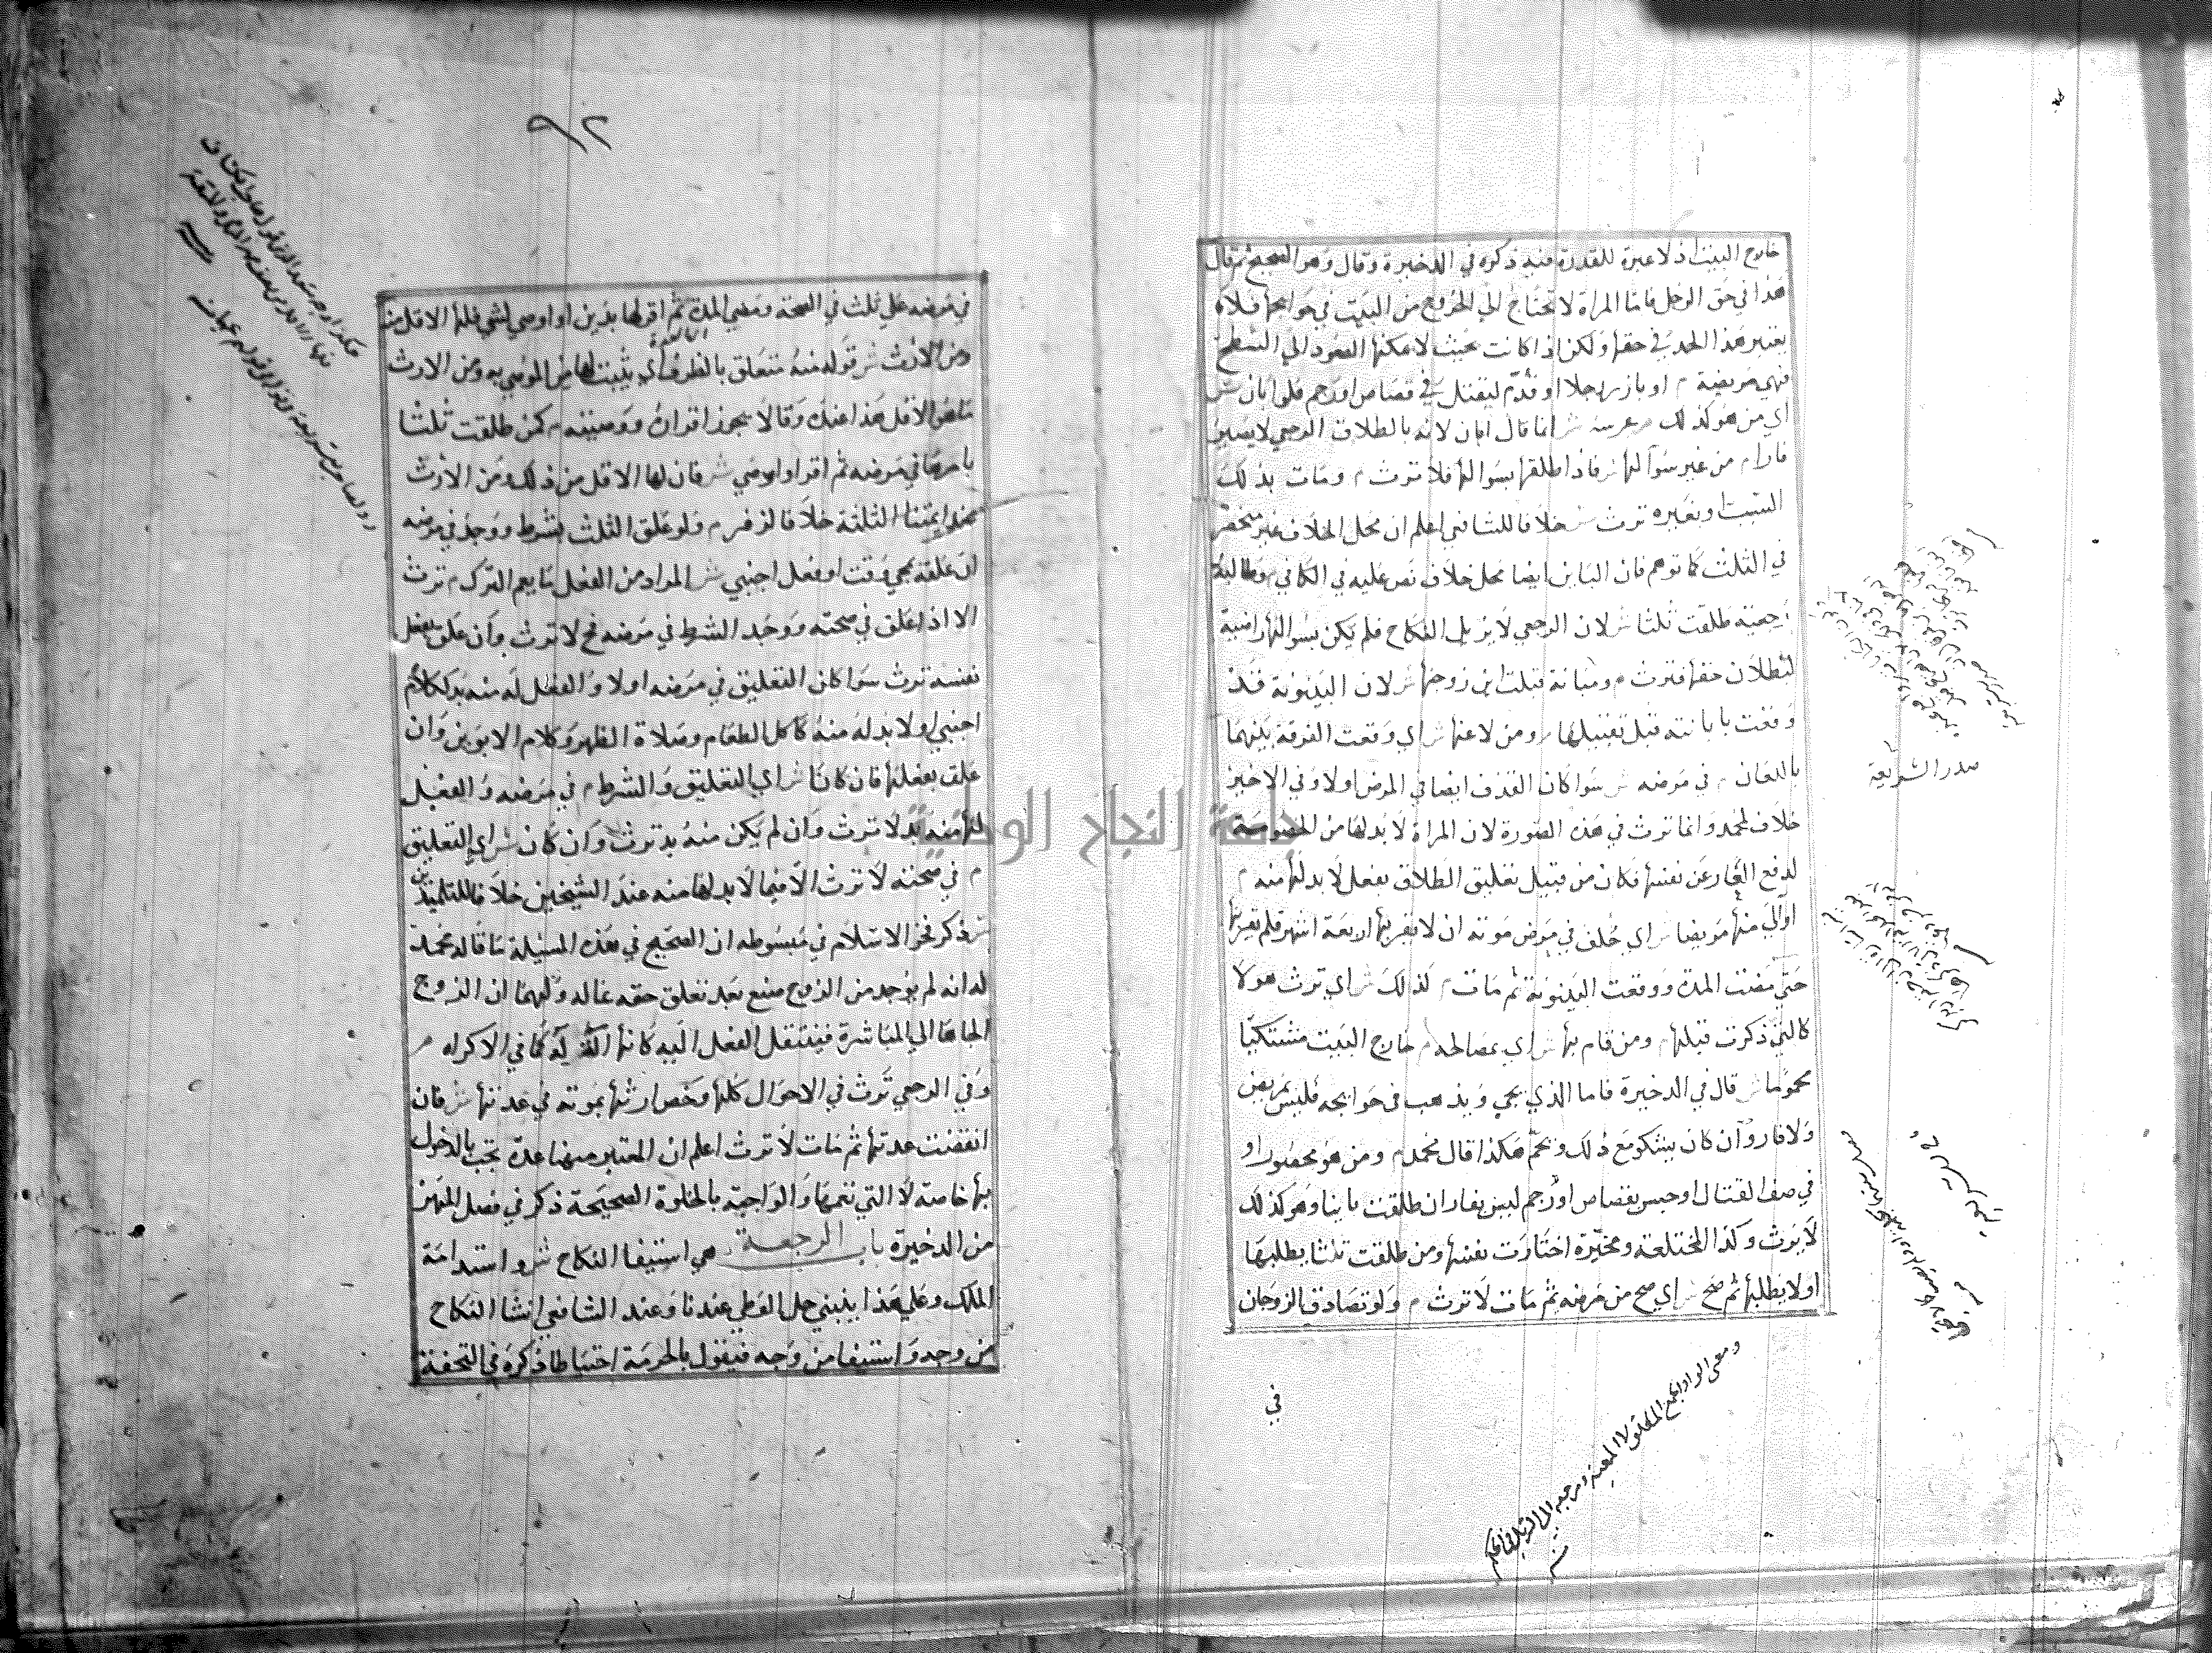 خارج البيت اذ لا عبرة للقدرة فيه ذكره في الذخيرة وقال وهو الصحيح ثم قال
هذا في حق الرجل فاما المراة لا تحتاج الي الخروج من البيت في حوايجها فلا
يعتبر هذا الحد في حقها ولكن اذا كانت بحيث لا يمكنها الصعود الي السطح
فهي مريضة م او بارز رجلا او قدم ليقتل في قصاص او رجم فلو ابان ش
اي من هو كذلك م عرسه ش انما قال ابان لانه بالطلاق الرجعي لا يصير
فارا م من غير سوالها ش فاذا طلقها بسوالها فلا ترث م ومات بذلك
السبب او بغيره ترث ش خلافا للشافعي اعلم ان محل الخلاف غير منحصر
في الثلث كما توهم فان الباين ايضا محل خلاف نص عليه في الكافي م وطالبة
رجعية طلقت ثلثا ش لان الرجعي لا يزيل النكاح فلم يكن بسوالها راضية
لبطلان حقها فترث م ومبانة قبلت ابن زوجها ش لان البينونة قد
وقعت بابانته قبل تقبيلها م ومن لاعنها ش اي وقعت الفرقة بينهما
باللعان م في مرضه ش سوا كان القذف ايضا في المرض اولا وفي الاخير
خلاف لمحمد وانما ترث في هذه الصورة لان المراة لا بد لها من الخصومة
لدفع العار عن نفسها فكان من قبيل تعليق الطلاق بفعل لا بد لها منه م
او آلي منها مريضا ش اي حلف في مرض موته ان لا يقربها اربعة اشهر فلم يقربها
حتي مضت المدة ووقعت البينونة ثم مات م كذلك ش اي ترث هولا
كالتي ذكرت قبلها م ومن قام بها ش اي بمصالحه م خارج البيت مشتكيا
محموما ش قال في الذخيرة فاما الذي يجي ويذهب في حوايجه فليس بمريض
ولا فار وان كان يشكو مع ذلك ويحم هكذا قال محمد م ومن هو محصور او
في صف القتال او حبس بقصاص او رجم ليس بفار ان طلقت باينا وهو كذلك
لا يرث وكذا المختلعة ومخيرة اختارت نفسها ومن طلقت ثلثا بطلبها
اولا بطلبها ثم صح ش اي صح من مرضه ثم مات لا ترث م ولو تصادق الزوجان
في
صدر الشريعة
ومعنى الواو الجمع المطلق لا المعية ومرجعه الى
منه
٩٢
في مرضه علي ثلث في الصحة ومضي المدة ثم اقر لها بدين او اوصي لشي فلها الاقل منه
ومن الارث ش قوله منه متعلق بالظرف اي يثبت لها من الموصي به ومن الارث
ما هو الاقل هذا عنده وقالا يجوز اقراره ووصيته م كمن طلقت ثلثا
بامرها في مرضه ثم اقر او اوصي ش فان لها الاقل من ذلك ومن الارث
عند ايمتنا الثلثة خلافا لزفر م ولو علق الثلث بشرط ووجد في مرضه
ان علقه بمجي وقت او فعل اجنبي ش المراد من الفعل ما يعم الترك م ترث
الا اذا علق في صحته ووجد الشرط في مرضه فح لا ترث وان علق بفعل
نفسه ترث سوا كان التعليق في مرضه اولا والفعل له منه بد ككلام
اجنبي اولا بد له منه كاكل الطعام وصلاة الظهر وكلام الابوين وان
علق بفعلها فان كانا ش اي التعليق والشرط م في مرضه والفعل
لها منه بد لا ترث وان لم يكن منه بد ترث وان كان ش اي التعليق
م في صحته لا ترث الا فيما لا بد لها منه عند الشيخين خلافا للتلميذين
ش ذكر فخر الاسلام في مبسوطه ان الصحيح في هذه المسئلة ما قاله محمد
له انه لم يوجد من الزوج صنع بعد تعلق حقه بماله ولهما ان الزوج
الجاها الي المباشرة فينتقل الفعل اليه كانها آلة له كما في الاكراه م
وفي الرجعي ترث في الاحوال كلها وخص ارثها بموته في عدتها ش فان
انقضت عدتها ثم مات لا ترث اعلم ان المعتبر ههنا عدة تجب بالدخول
بها خاصة لا التي تتمها والواجبة بالخلوة الصحيحة ذكر في فصل المهر
من الذخيرة باب الرجعة هي استيفا النكاح ش واستدامة
الملك وعلي هذا ينبني حل الوطي عندنا وعند الشافعي انشا النكاح
من وجه واستيفا من وجه فيقول بالحرمة احتياطا ذكره في التحفة
جامعة النجاح الوطنية